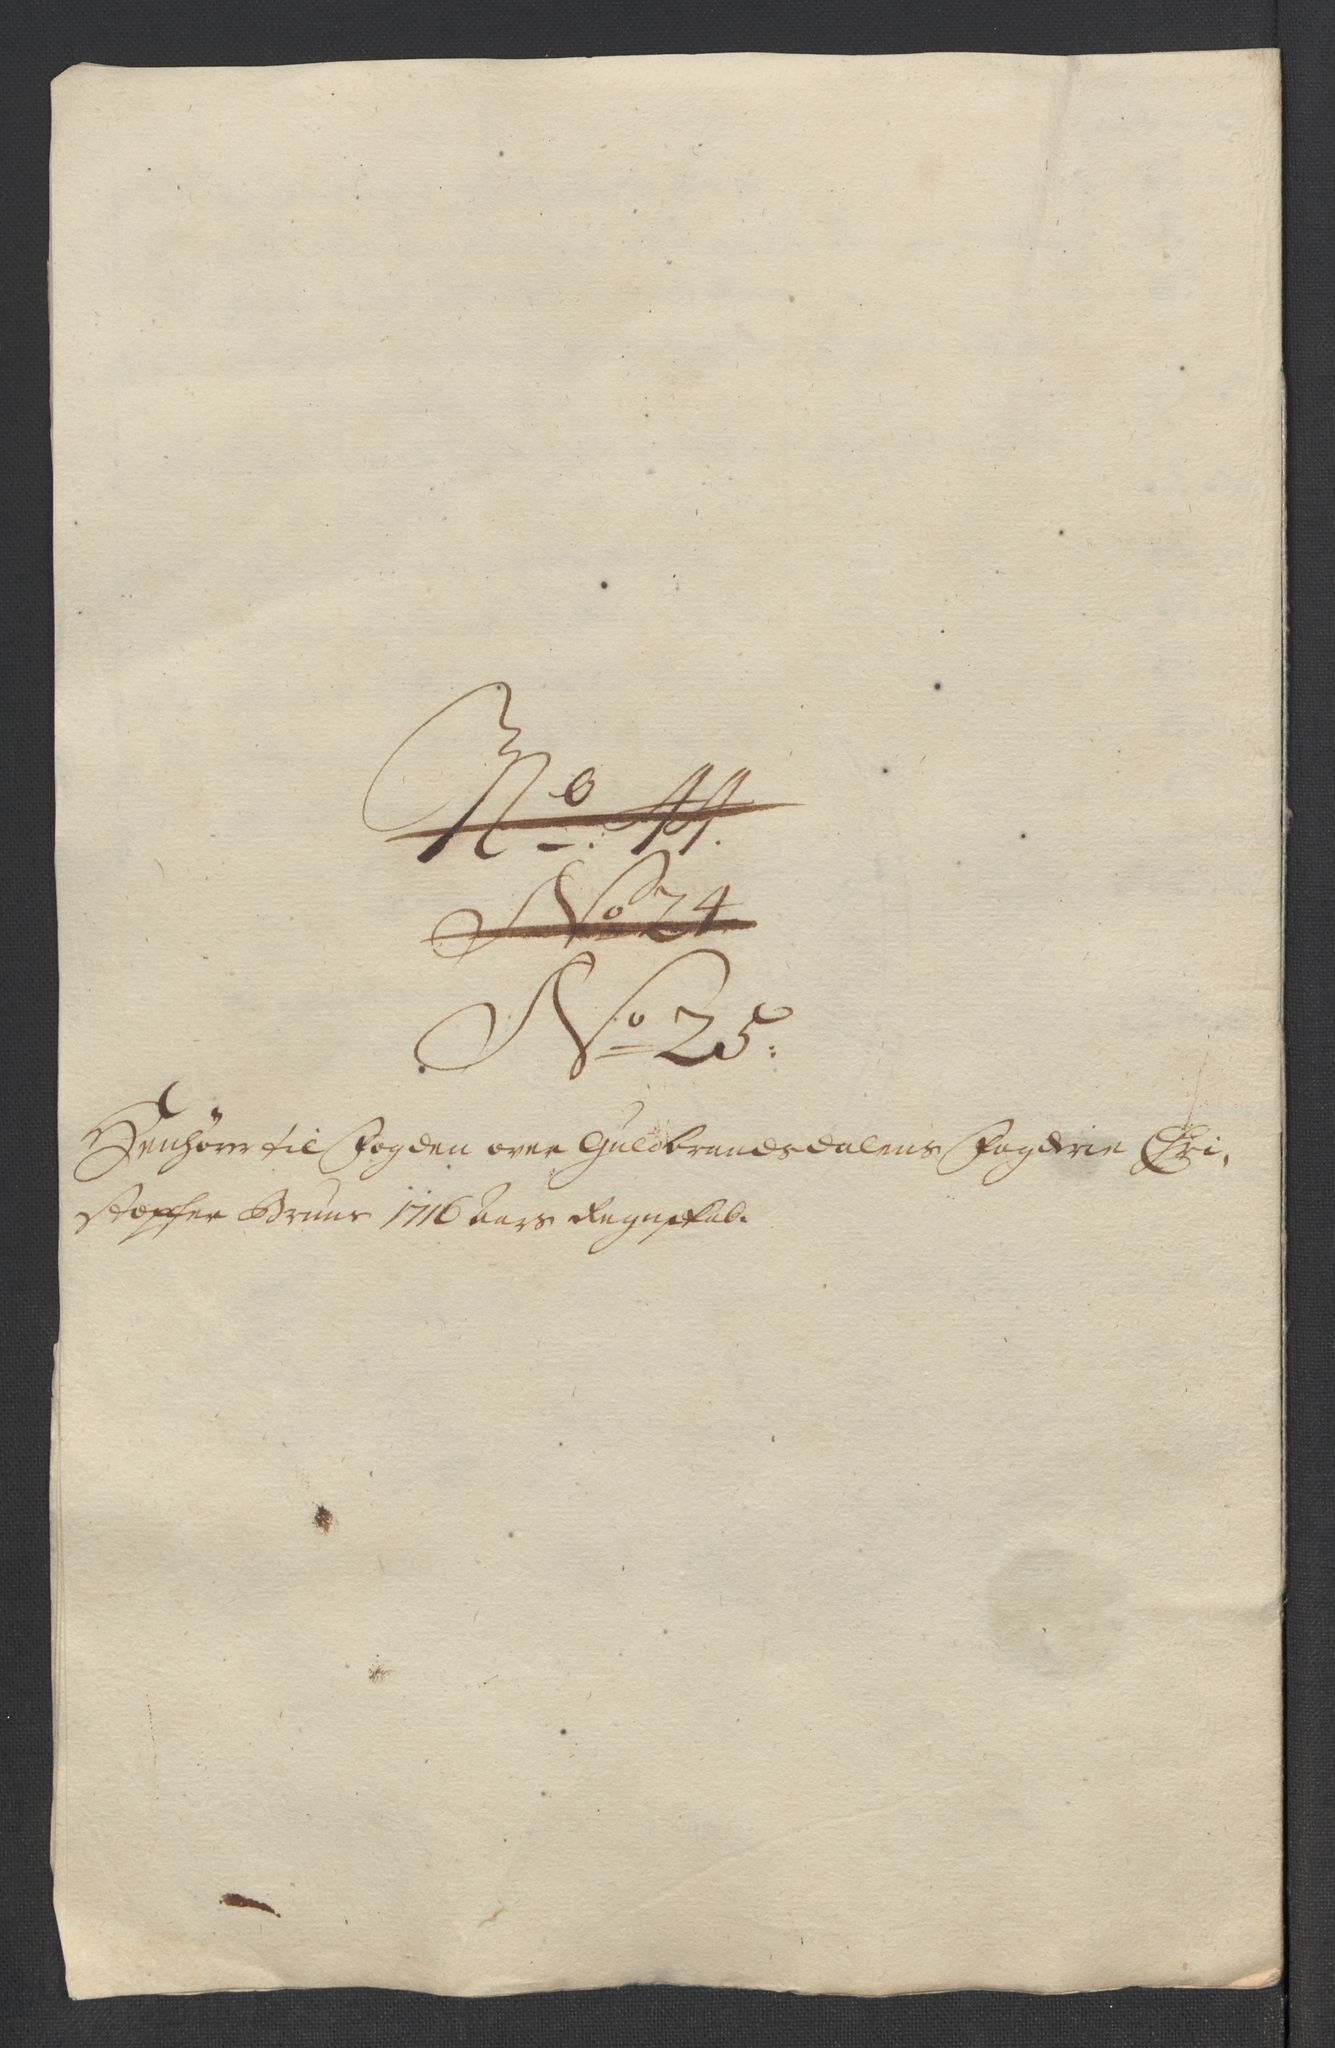 No 11.
No 24
No 25:
Henhører til Fogden over Guldbrandsdalens Fogderie Chri,
stopher Bruns 1716 Aars Regnskab.